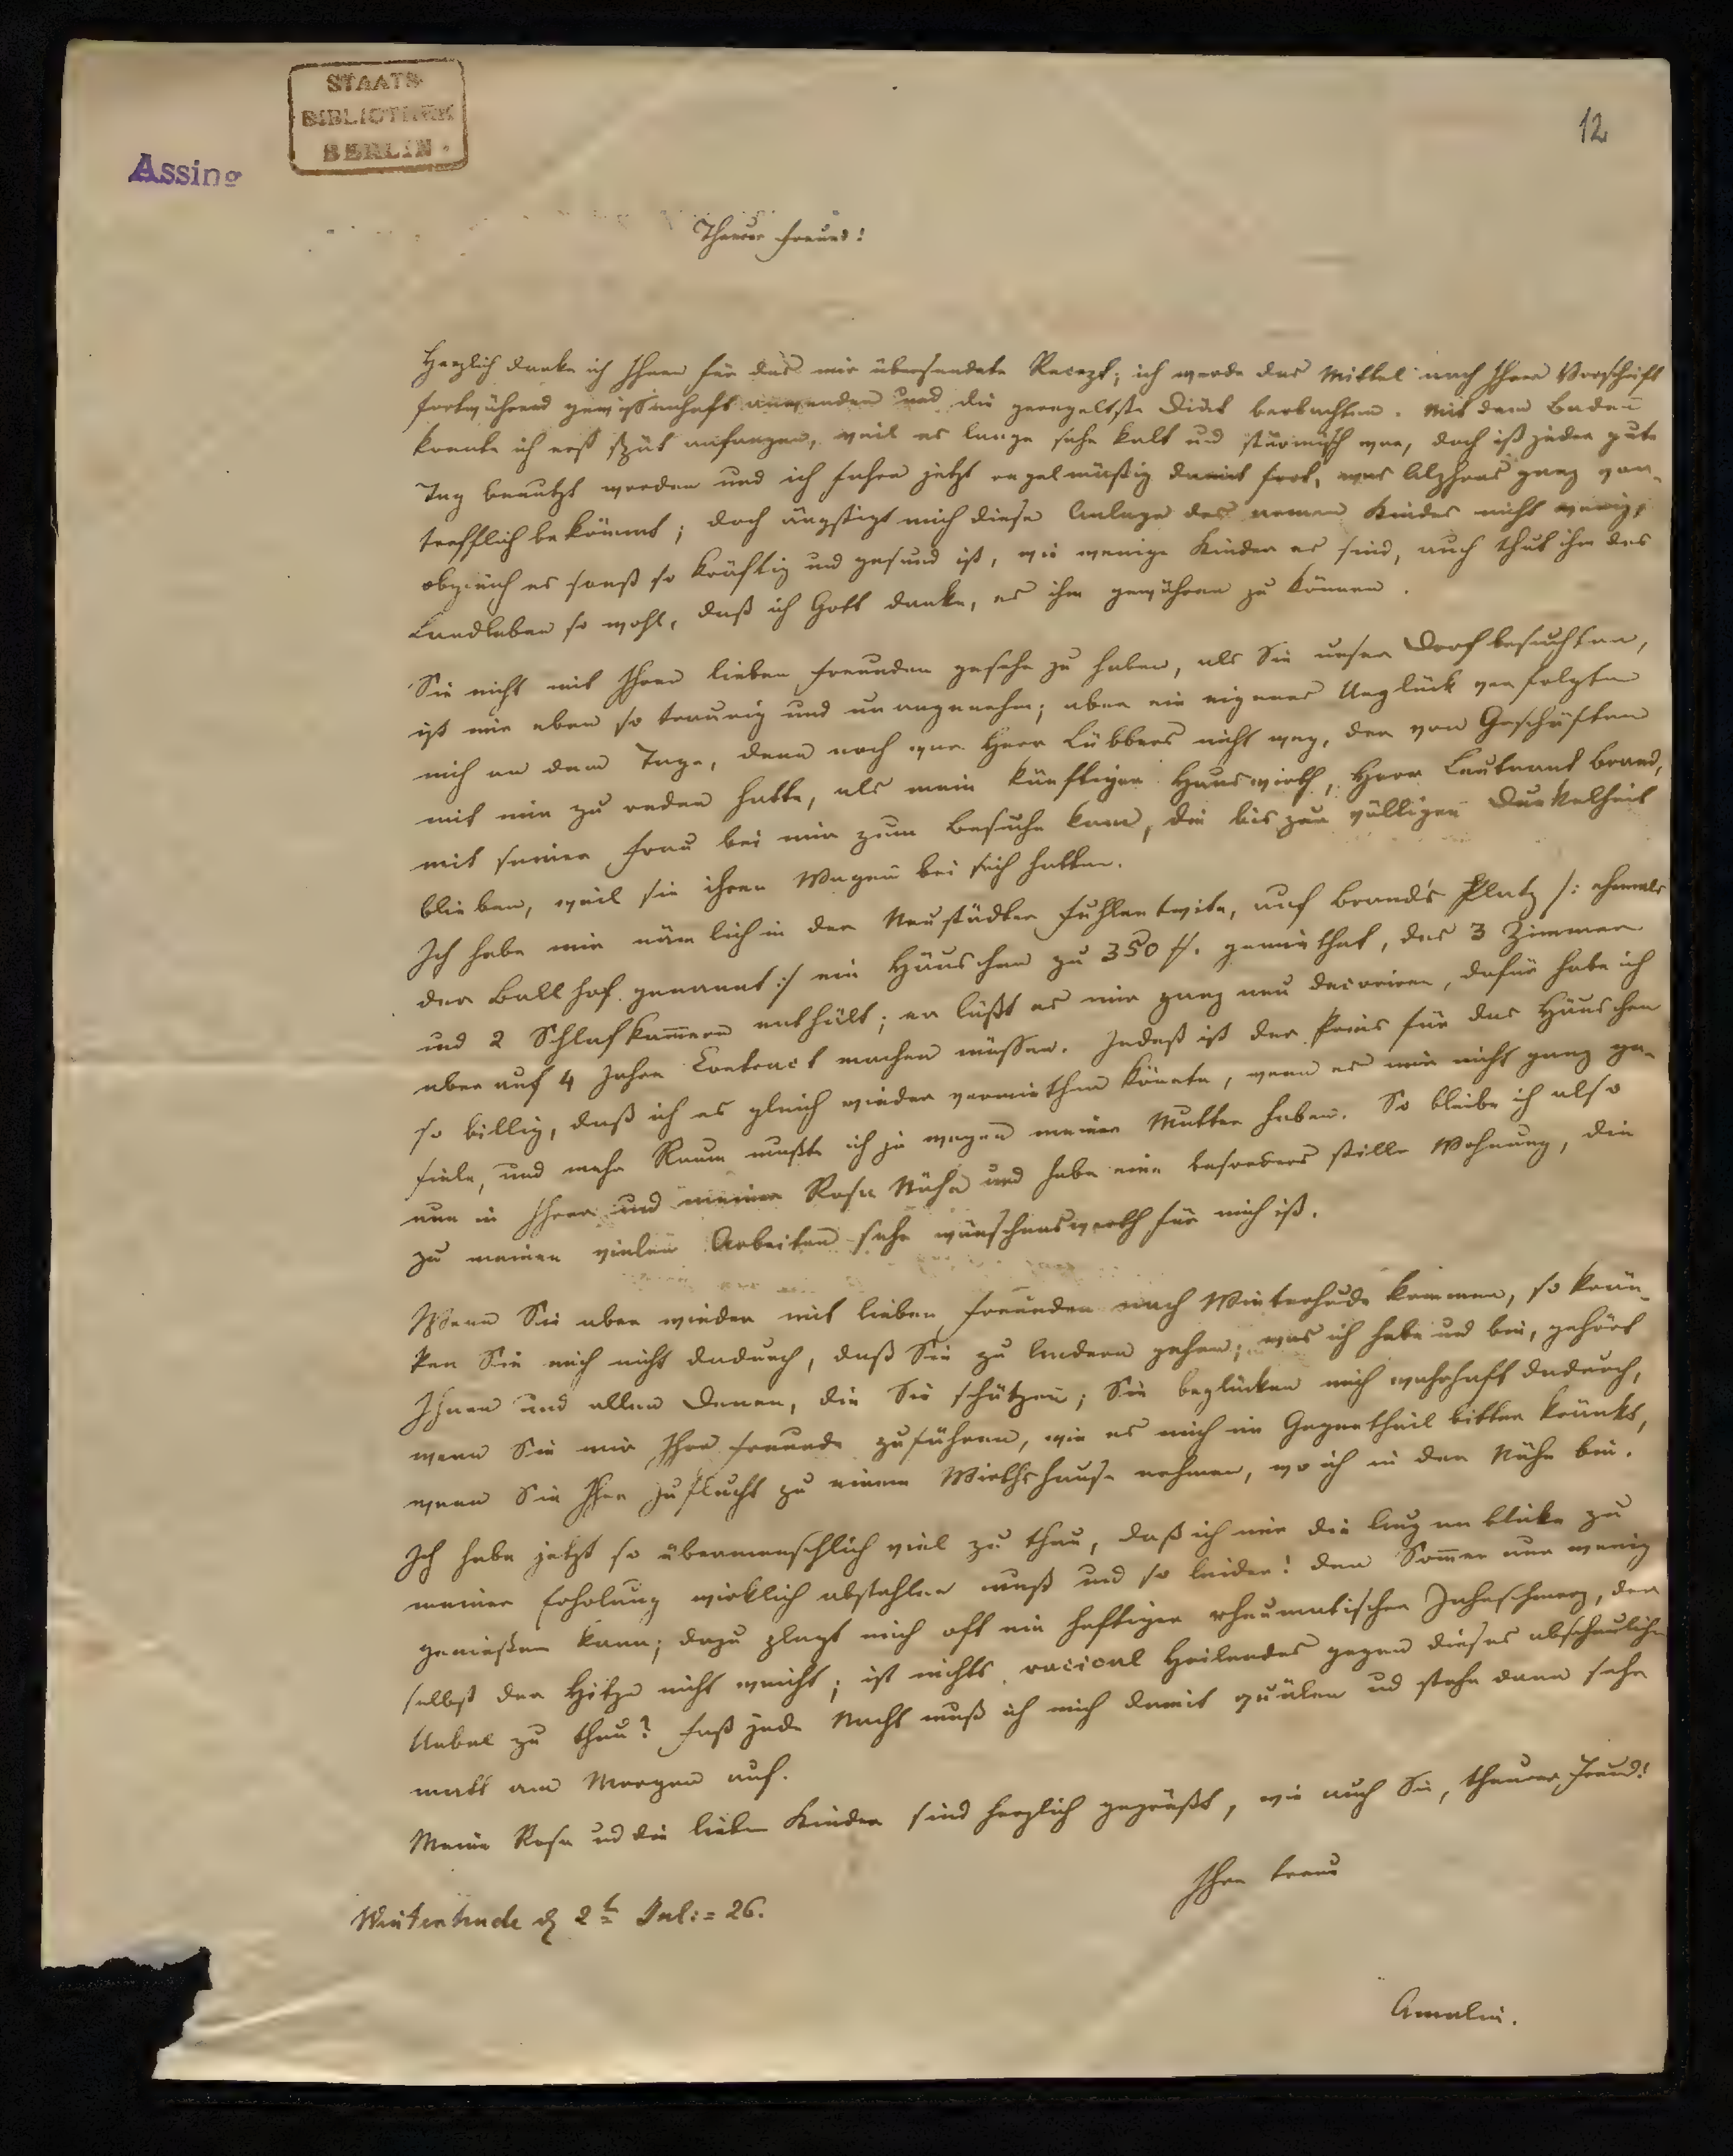 STAATS-
BIBLIOTHEK
BERLIN.
Assing
12
Theurer Freund!
Herzlich danke ich Ihnen für das mir übersendete Recept; ich werde das Mittel nach Ihrer Vorschrift
fortwährend gewissenhaft anwenden und die geregeltste Diät beobachten. Mit dem Baden
konnte ich erst spät anfangen, weil es lange sehr kalt und stürmisch war, doch ist jeder gute
Tag benutzt worden und ich fahre jetzt regelmäßig damit fort, was Alphons ganz vor-
trefflich bekömmt; doch ängstigt mich diese Anlage des armen Kindes nicht wenig,
obgleich es sonst so kräftig und gesund ist, wie wenige Kinder es sind, auch thut ihm das
Landleben so wohl, daß ich Gott danke, es ihm gewähren zu können.
Sie nicht mit Ihren lieben Freunden gesehn zu haben, als Sie unser Dorf besuchten,
ist mir eben so traurig und unangenehm; aber ein eigenes Unglück verfolgte
mich an dem Tage, denn noch war Herr Lübbers nicht weg, der von Geschäften
mit mir zu reden hatte, als mein künftiger Hauswirth, Herr Leutnant Brand,
mit seiner Frau bei mir zum Besuche kam, die bis zur völligen Dunkelheit
blieben, weil sie ihren Wagen bei sich hatten.
Ich habe mir nämlich in der Neustädter Fuhlentwite, auf Brand's Platz /: ehemals
der Ballhof genannt :/ ein Häuschen zu 350 #. gemiethet, das 3 Zimmer
und 2 Schlafkam̅ern enthält; er läßt es mir ganz neu decoriren, dafür habe ich
aber auf 4 Jahre Contract machen müssen. Indeß ist der Preis für das Häuschen
so billig, daß ich es gleich wieder vermiethen könnte, wenn es mir nicht ganz ge-
fiele, und mehr Raum mußte ich ja wegen meiner Mutter haben. So bleibe ich also
nun in Ihrer und meiner Rosa Nähe und habe eine besonders stille Wohnung, die
zu meinen vielen Arbeiten sehr wünschenswerth für mich ist.
Wenn Sie aber wieder mit lieben Freunden nach Winterhude kommen, so krän-
ken Sie mich nicht dadurch, daß Sie zu Andern gehen; was ich habe und bin, gehört
Ihnen und allen Denen, die Sie schätzen; Sie beglücken mich wahrhaft dadurch,
wenn Sie mir Ihre Freunde zuführen, wie es mich im Gegentheil bitter kränkt,
wenn Sie Ihre Zuflucht zu einem Wirthshause nehmen, wo ich in der Nähe bin.
Ich habe jetzt so übermenschlich viel zu thun, daß ich mir die Augenblicke zu
meiner Erholung wirklich abstehlen muß und so leider! den Som̅er nur wenig
genießen kann; dazu plagt mich oft ein heftiger rheumatischer Zahnschmerz, der
selbst der Hitze nicht weicht; ist nichts racional Heilendes gegen dieses abscheuliche
Uebel zu thun? Fast jede Nacht muß ich mich damit quälen und stehe dann sehr
matt am Morgen auf.
Meine Rosa und die lieben Kinder sind herzlich gegrüßt, wie auch Sie, theurer Freund!
Ihre treue
Winterhude d 2t Juli = 26.
Amalie.